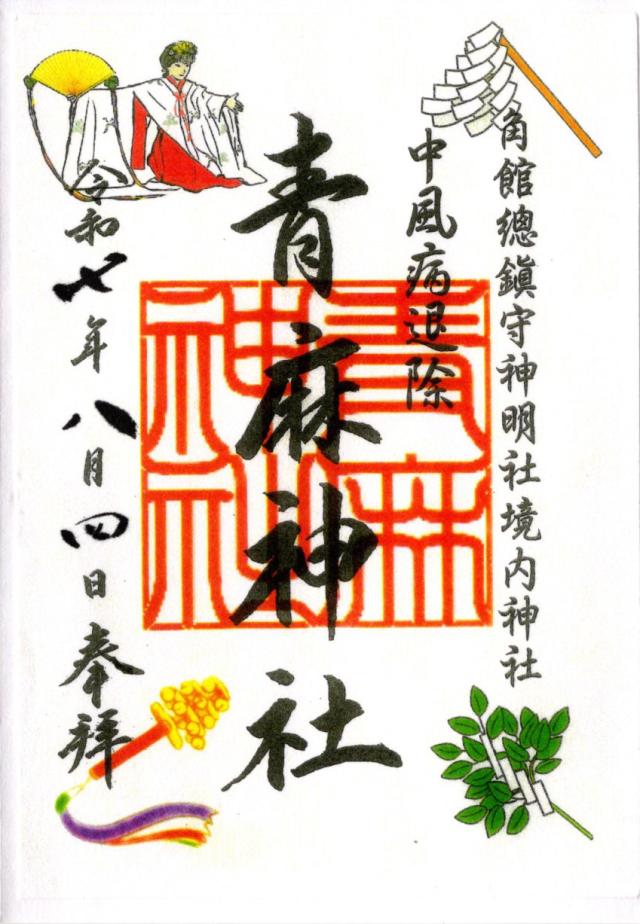 角館總鎮守神明社境内神社
中風病退除
青麻神社
青麻神社
令和七年八月四日奉拝